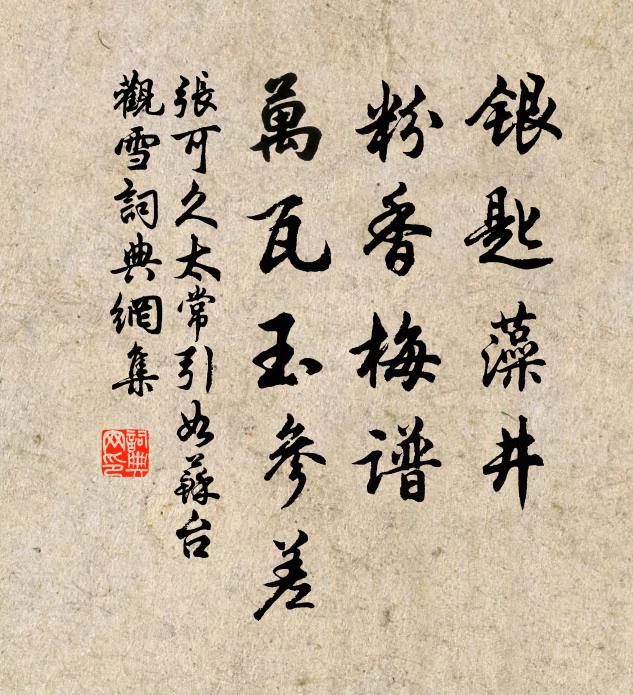 銀匙藻井
粉香梅譜
萬瓦玉參差
張可久太常引如蘇台
觀雪詞典網集
詞典
网印